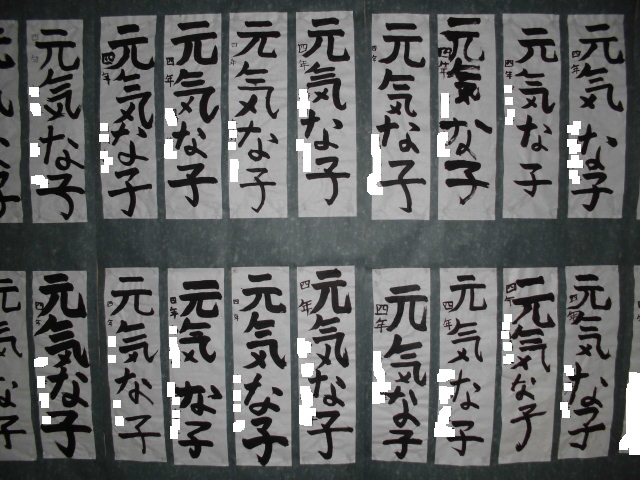 元気な子
四年
元気な子
四年
元気な子
四年
元気な子
四年
元気な子
四年
元気な子
四年
元気な子
四年
元気な子
四年
元気な子
四年
元気な子
四年
元気な子
四年
元気な子
四年
元気な子
四年
元気な子
四年
元気な子
四年
元気な子
四年
元気な子
四年
元気な子
四年